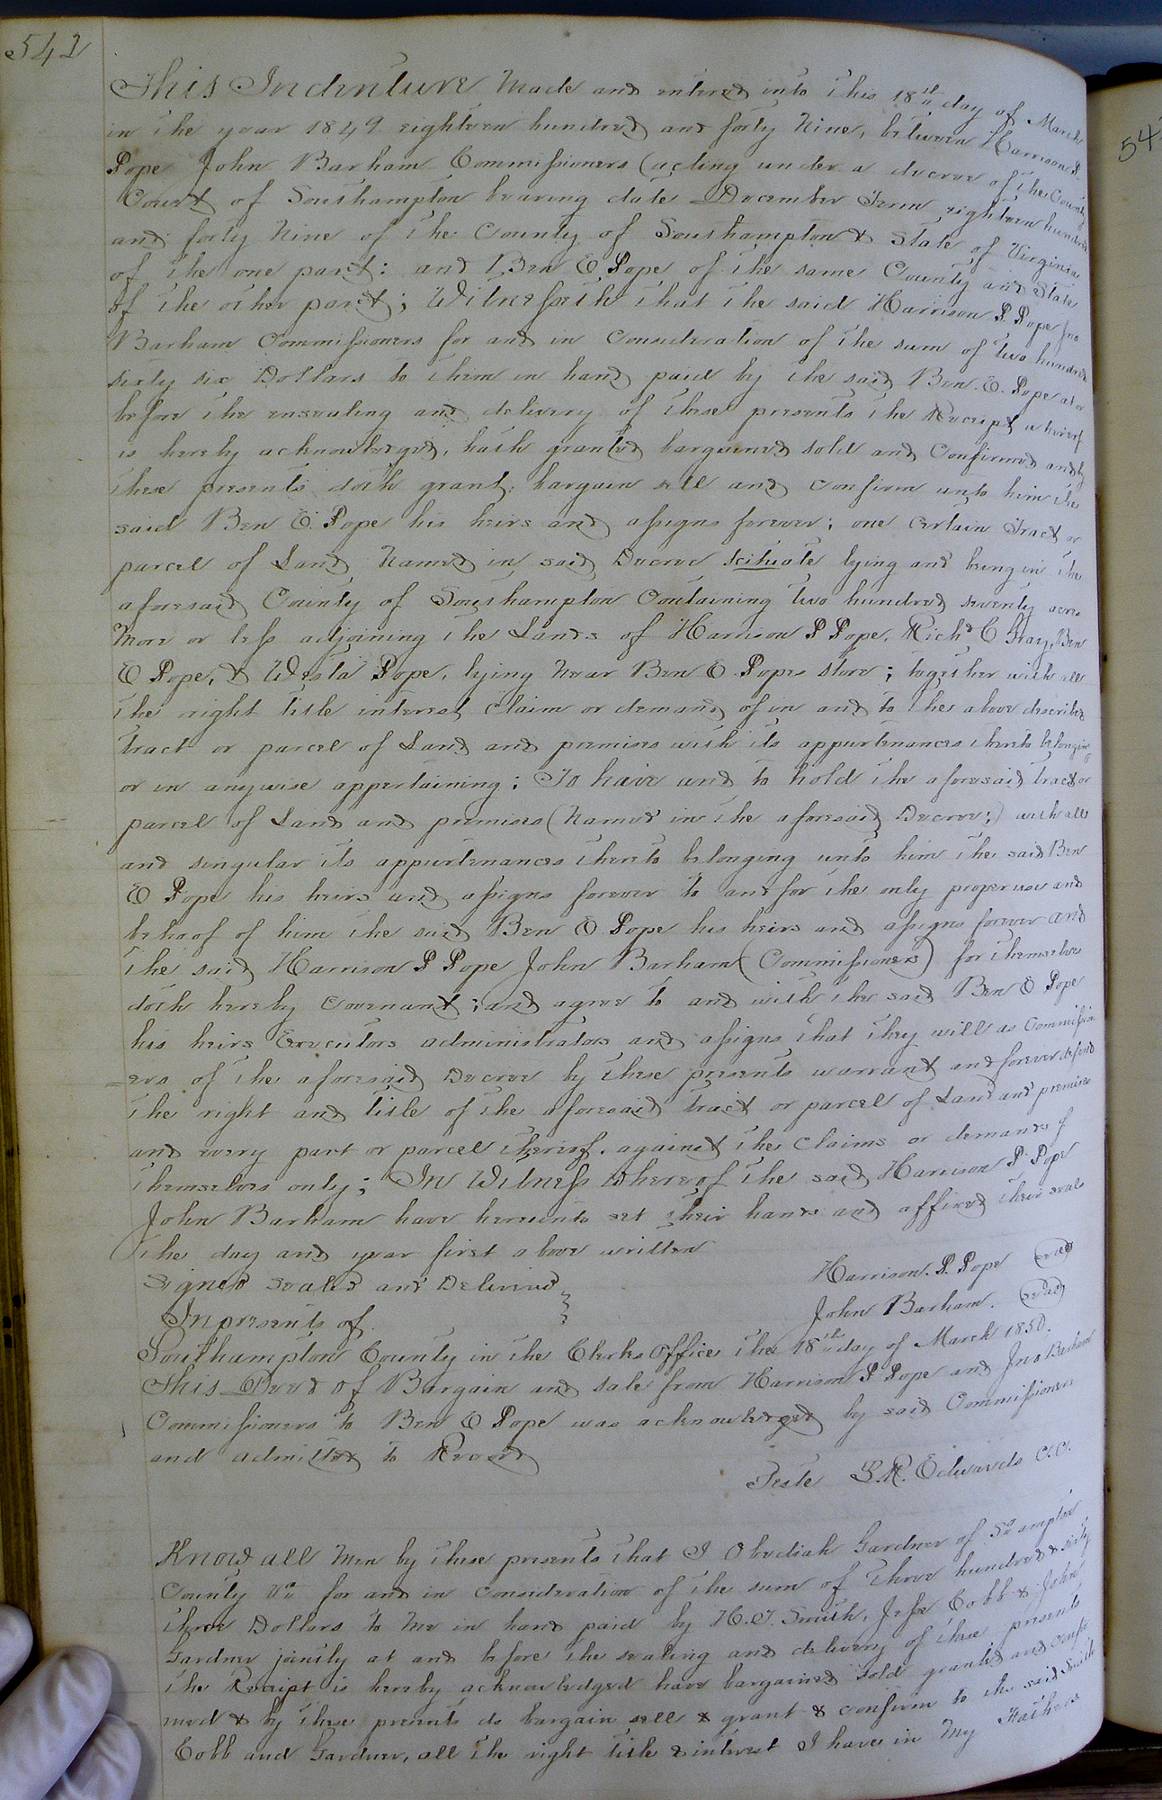 542
This Indenture Made and entered into this 18th day of March
in the year 1849 eighteen hundred and forty Nine, between Harrison P.
Pope John Barham Commissioners (acting under a decree of the County
Court of Southampton bearing date December Term eighteen hundred
and forty Nine of the County of Southampton & State of Virginia
of the one part: and Ben E. Pope of the same County and State
of the other part; Witnesseth that the said Harrison P. Pope Jno
Barham Commissioners for and in Consideration of the sum of two hundred
sixty six Dollars to them in hand paid by the said Ben. E. Pope at or
before the ensealing and delivery of these presents the Receipt whereof
is hereby acknowledged, hath granted bargained sold and Confirmed and by
these presents doth grant, bargain sell and confirm unto him the
said Ben E Pope his heirs and assigns forever; one certain Tract or
parcel of Land Named in said Decree scituate lying and being in the
aforesaid County of Southampton Containing two hundred seventy acres
More or less adjoining the Lands of Harrison P Pope, Richd C Gray, Ben
E Pope, & Westa Pope, lying Near Ben E Popes Store; together with all
the right title interest Claim or demand of in and to the above described
tract or parcel of Land and premises with its appurtenances thereto belonging
or in anywise appertaining: To have and to hold the aforesaid tract or
parcel of Land and premises (Named in the aforesaid Decree;) with all
and singular its appurtenances thereto belonging unto him the said Ben
E Pope his heirs and assigns forever to and for the only proper use and
behoof of him the said Ben E Pope his heirs and assigns forever and
the said Harrison P Pope John Barham (Commissioners) for themselves
doth hereby Covenant; and agree to and with the said Ben E Pope
his heirs Executors administrators and assigns that they will as Commission
=ers of the aforesaid Decree by these presents warrant and forever defend
the right and title of the aforesaid tract or parcel of Land and premises
and every part or parcel thereof, against the Claims or demands of
themselves only; In Witness Whereof the said Harrison P. Pope
John Barham have hereunto set their hands and affixed their seals
the day and year first above written
Signed Sealed and Delivered Harrison. P. Pope seal
In presents of John Barham. seal
Southampton County in the Clerks Office the 18th day of March 1850.
This Deed of Bargain and sale from Harrison P Pope and Jno Barham
Commissioners to Ben E Pope was acknowledged by said Commissioners
and admitted to Record
Teste L.R. Edwards C.C.
Know all Men by these presents that I Obediah Gardner of So ampton
County Va for and in consideration of the sum of three hundred & sixty
three Dollars to Me in hand paid by H.J. Smith, Jesse Cobb & John
Gardner jointly at and before the sealing and delivery of these presents
the Receipt is hereby acknowledged have bargained sold granted and confir
med & by these presents do bargain sell & grant & confirm to the said Smith
Cobb and Gardner, all the right title & interest I have in My Fathers